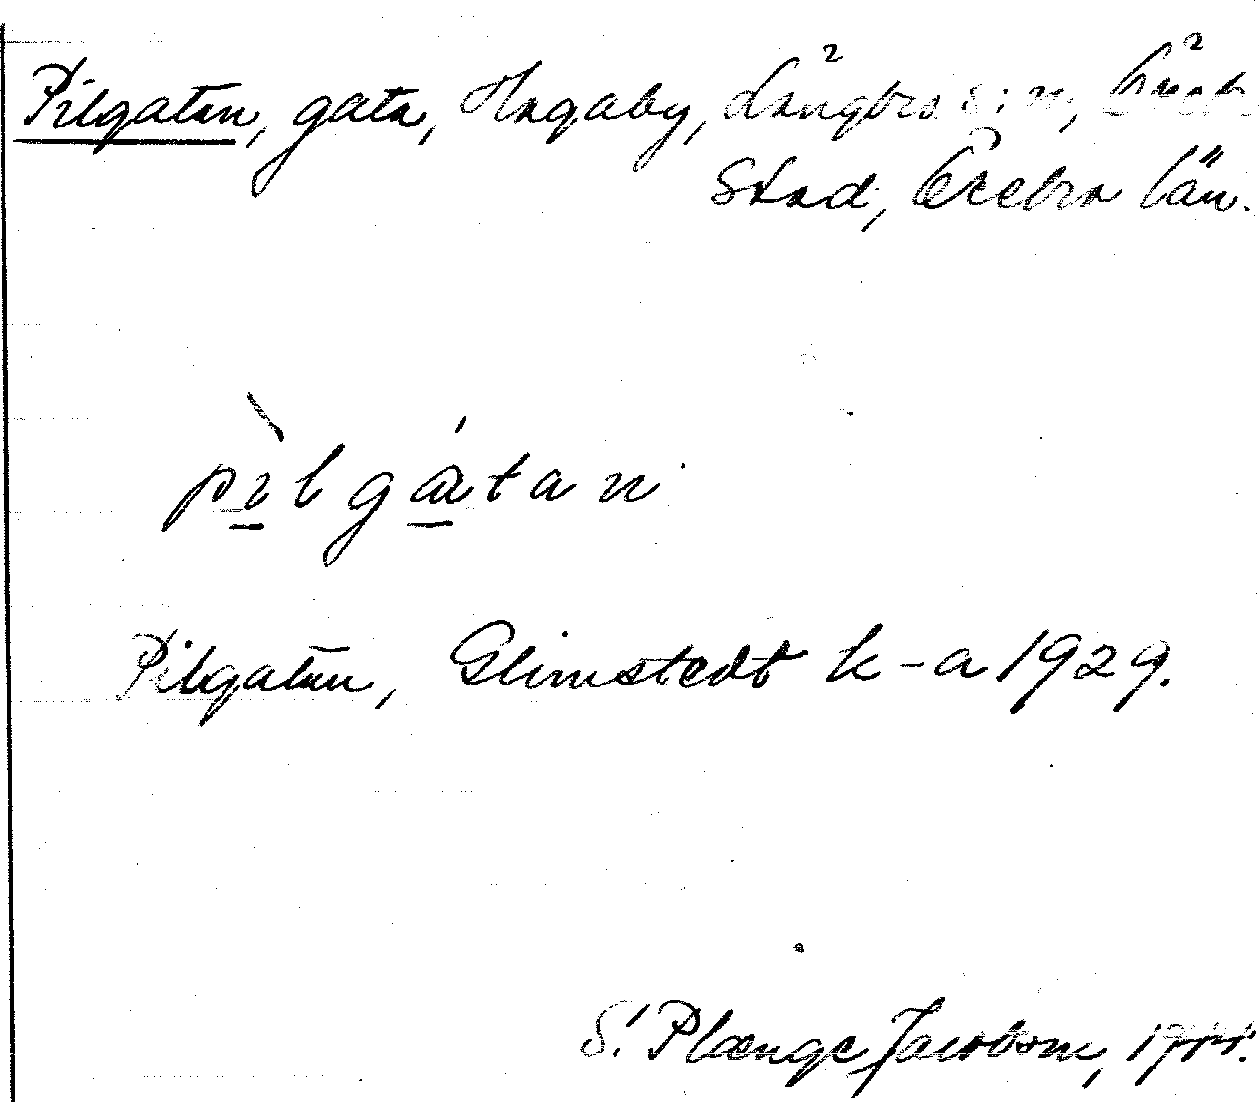 Pilgatan, gata, Hagaby, Längbro s:n, Örebro
stad, Örebro län.
pìlgátan
Pilgatan, Glimstedt k-a 1929.
S. Plænge Jacobson,